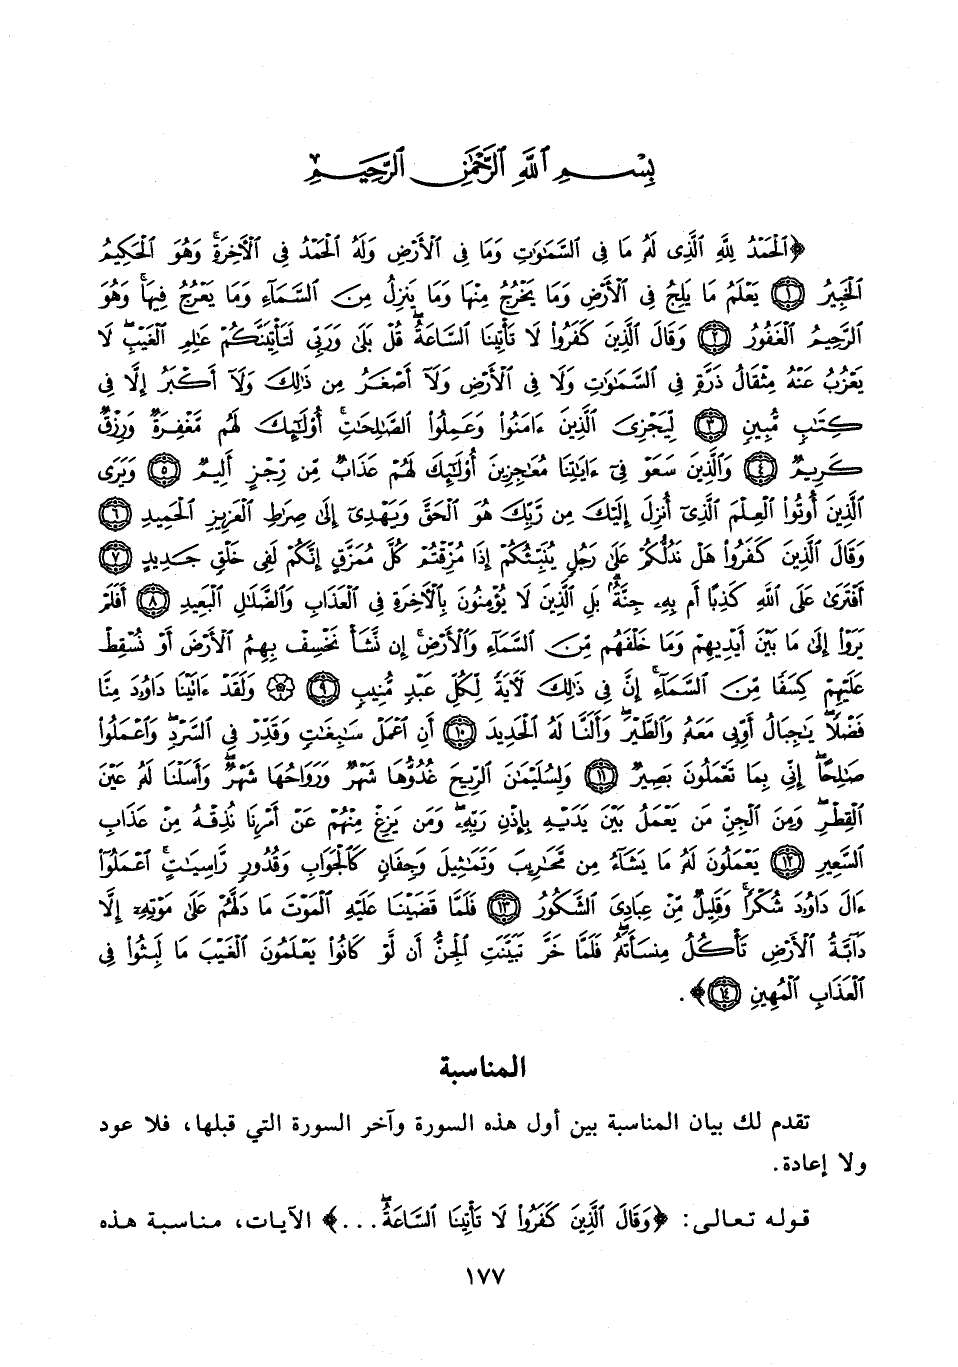 بِسْمِ ٱللَّهِ ٱلرَّحْمَٰنِ ٱلرَّحِيمِ
﴿ٱلْحَمْدُ لِلَّهِ ٱلَّذِى لَهُۥ مَا فِى ٱلسَّمَٰوَٰتِ وَمَا فِى ٱلْأَرْضِ وَلَهُ ٱلْحَمْدُ فِى ٱلْأَخِرَةِۚ وَهُوَ ٱلْحَكِيمُ
ٱلْخَبِيرُ ١ يَعْلَمُ مَا يَلِجُ فِى ٱلْأَرْضِ وَمَا يَخْرُجُ مِنْهَا وَمَا يَنزِلُ مِنَ ٱلسَّمَآءِ وَمَا يَعْرُجُ فِيهَاۚ وَهُوَ
ٱلرَّحِيمُ ٱلْغَفُورُ ٢ وَقَالَ ٱلَّذِينَ كَفَرُوا۟ لَا تَأْتِينَا ٱلسَّاعَةُۖ قُلْ بَلَىٰ وَرَبِّى لَتَأْتِيَنَّكُمْ عَٰلِمِ ٱلْغَيْبِۖ لَا
يَعْزُبُ عَنْهُ مِثْقَالُ ذَرَّةٍ فِى ٱلسَّمَٰوَٰتِ وَلَا فِى ٱلْأَرْضِ وَلَآ أَصْغَرُ مِن ذَٰلِكَ وَلَآ أَكْبَرُ إِلَّا فِى
كِتَٰبٍ مُّبِينٍ ٣ لِّيَجْزِىَ ٱلَّذِينَ ءَامَنُوا۟ وَعَمِلُوا۟ ٱلصَّٰلِحَٰتِۚ أُو۟لَٰٓئِكَ لَهُم مَّغْفِرَةٌ وَرِزْقٌ
كَرِيمٌ ٤ وَٱلَّذِينَ سَعَوْ فِىٓ ءَايَٰتِنَا مُعَٰجِزِينَ أُو۟لَٰٓئِكَ لَهُمْ عَذَابٌ مِّن رِّجْزٍ أَلِيمٌ ٥ وَيَرَى
ٱلَّذِينَ أُوتُوا۟ ٱلْعِلْمَ ٱلَّذِىٓ أُنزِلَ إِلَيْكَ مِن رَّبِّكَ هُوَ ٱلْحَقَّ وَيَهْدِىٓ إِلَىٰ صِرَٰطِ ٱلْعَزِيزِ ٱلْحَمِيدِ ٦
وَقَالَ ٱلَّذِينَ كَفَرُوا۟ هَلْ نَدُلُّكُمْ عَلَىٰ رَجُلٍ يُنَبِّئُكُمْ إِذَا مُزِّقْتُمْ كُلَّ مُمَزَّقٍ إِنَّكُمْ لَفِى خَلْقٍ جَدِيدٍ ٧
أَفْتَرَىٰ عَلَى ٱللَّهِ كَذِبًا أَم بِهِۦ جِنَّةٌۢۗ بَلِ ٱلَّذِينَ لَا يُؤْمِنُونَ بِٱلْأَخِرَةِ فِى ٱلْعَذَابِ وَٱلضَّلَٰلِ ٱلْبَعِيدِ ٨ أَفَلَمْ
يَرَوْا۟ إِلَىٰ مَا بَيْنَ أَيْدِيهِمْ وَمَا خَلْفَهُم مِّنَ ٱلسَّمَآءِ وَٱلْأَرْضِۚ إِن نَّشَأْ نَخْسِفْ بِهِمُ ٱلْأَرْضَ أَوْ نُسْقِطْ
عَلَيْهِمْ كِسَفًا مِّنَ ٱلسَّمَآءِۚ إِنَّ فِى ذَٰلِكَ لَأَيَةً لِّكُلِّ عَبْدٍ مُّنِيبٍ ٩ وَلَقَدْ ءَاتَيْنَا دَاوُۥدَ مِنَّا
فَضْلًاۖ يَٰجِبَالُ أَوِّبِى مَعَهُۥ وَٱلطَّيْرَۖ وَأَلَنَّا لَهُ ٱلْحَدِيدَ ١٠ أَنِ ٱعْمَلْ سَٰبِغَٰتٍ وَقَدِّرْ فِى ٱلسَّرْدِۖ وَٱعْمَلُوا۟
صَٰلِحًاۖ إِنِّى بِمَا تَعْمَلُونَ بَصِيرٌ ١١ وَلِسُلَيْمَٰنَ ٱلرِّيحَ غُدُوُّهَا شَهْرٌ وَرَوَاحُهَا شَهْرٌۖ وَأَسَلْنَا لَهُۥ عَيْنَ
ٱلْقِطْرِۖ وَمِنَ ٱلْجِنِّ مَن يَعْمَلُ بَيْنَ يَدَيْهِ بِإِذْنِ رَبِّهِۦۖ وَمَن يَزِغْ مِنْهُمْ عَنْ أَمْرِنَا نُذِقْهُ مِنْ عَذَابِ
ٱلسَّعِيرِ ١٢ يَعْمَلُونَ لَهُۥ مَا يَشَآءُ مِن مَّحَٰرِيبَ وَتَمَٰثِيلَ وَجِفَانٍ كَٱلْجَوَابِ وَقُدُورٍ رَّاسِيَٰتٍۚ ٱعْمَلُوٓا۟
ءَالَ دَاوُۥدَ شُكْرًاۚ وَقَلِيلٌ مِّنْ عِبَادِىَ ٱلشَّكُورُ ١٣ فَلَمَّا قَضَيْنَا عَلَيْهِ ٱلْمَوْتَ مَا دَلَّهُمْ عَلَىٰ مَوْتِهِۦٓ إِلَّا
دَآبَّةُ ٱلْأَرْضِ تَأْكُلُ مِنسَأَتَهُۥۖ فَلَمَّا خَرَّ تَبَيَّنَتِ ٱلْجِنُّ أَن لَّوْ كَانُوا۟ يَعْلَمُونَ ٱلْغَيْبَ مَا لَبِثُوا۟ فِى
ٱلْعَذَابِ ٱلْمُهِينِ ١٤﴾.
المناسبة
تقدم لك بيان المناسبة بين أول هذه السورة وآخر السورة التي قبلها، فلا عود
ولا إعادة.
قوله تعالى: ﴿وَقَالَ ٱلَّذِينَ كَفَرُوا۟ لَا تَأْتِينَا ٱلسَّاعَةُۖ...﴾ الآيات، مناسبة هذه
١٧٧